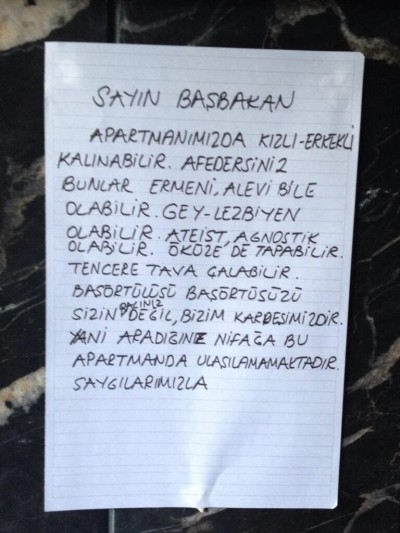 SAYIN BAŞBAKAN
APARTMANIMIZDA KIZLI-ERKEKLİ
KALINABİLİR. AFEDERSİNİZ
BUNLAR ERMENİ, ALEVİ BİLE
OLABİLİR. GEY-LEZBİYEN
OLABİLİR. ATEİST, AGNOSTİK
OLABİLİR. ÖKÜZE DE TAPABİLİR.
TENCERE TAVA ÇALABİLİR.
BAŞÖRTÜLÜSÜ BAŞÖRTÜSÜZÜ
SİZİN BACINIZ DEĞİL, BİZİM KARDEŞİMİZDİR.
YANİ ARADIĞINIZ NİFAĞA BU
APARTMANDA ULAŞILAMAMAKTADIR.
SAYGILARIMIZLA